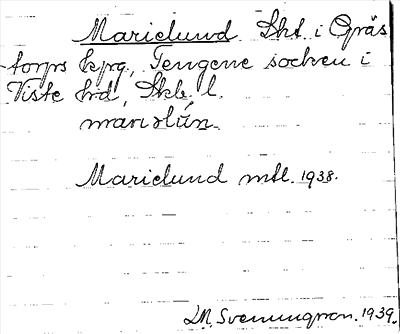 Marielund. Lht. i Gräs
torps kpg, Tengene socken i
Viste hrd, Skb. l.
marielún.
Marielund mtl. 1938.
M. Svenungson. 1939.